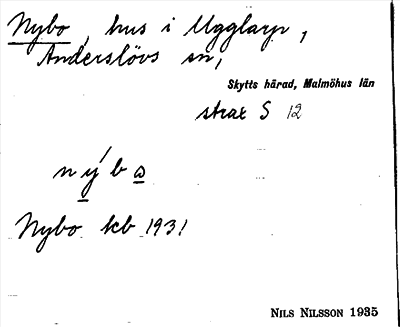 Nybo, hus i Ugglarp,
Anderslövs sn,
Skytts härad, Malmöhus län
strax S 12
nýbo
Nybo kb 1931
NILS NILSSON 1935